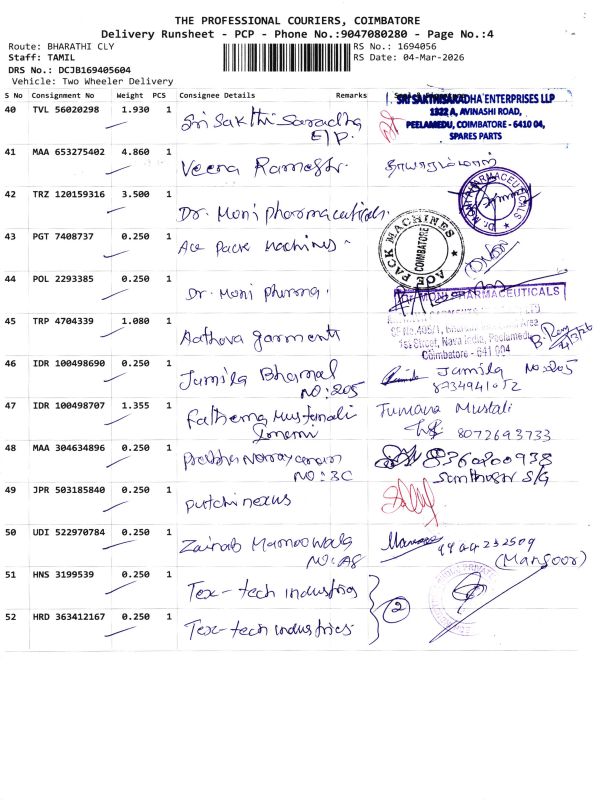 THE PROFESSIONAL COURIERS, COIMBATORE
Delivery Runsheet - PCP - Phone No.:9047080280 - Page No.:4
Route: BHARATHI CLY
RS No.: 1694056
Staff: TAMIL
RS Date: 04-Mar-2026
DRS No.: DCJB169405604
Vehicle: Two Wheeler Delivery
S No Consignment No Weight PCS Consignee Details Remarks
40 TVL 56020298 1.930 1 Sri Sakthi Saradha
E/P.
SRI SAKTHISARADHA ENTERPRISES LLP
1322 A, AVINASHI ROAD,
PEELAMEDU, COIMBATORE - 6410 04,
SPARES PARTS
41 MAA 653275402 4.860 1 Veena Ramesh.
42 TRZ 120159316 3.500 1 Dr. Moni pharmaceuticals.
Dr. MONI PHARMACEUTICALS
43 PGT 7408737 0.250 1 Ace Pack Machines
ACE PACK MACHINES
COIMBATORE
44 POL 2293385 0.250 1 Dr. Moni pharma.
Dr. MONI PHARMACEUTICALS
45 TRP 4704339 1.080 1 Aathava garments
SF No.405/1, Area
1st Street, Nava India, Peelamedu
Coimbatore - 641 004
B. Ram
4/3/26
46 IDR 100498690 0.250 1 Jamila Bharmal
NO:205
Jamila NO:205
8734941052
47 IDR 100498707 1.355 1 Fathema Mustanali
Imami
Jumana Mustali
8072693733
48 MAA 304634896 0.250 1 Prabhu Narrayanan
NO:3C
8360200938
Santhosh S/G
49 JPR 503185840 0.250 1 putchi nexus
50 UDI 522970784 0.250 1 Zainab Mamoowala
NO:A8
9944232509
(Mansoor)
51 HNS 3199539 0.250 1 Tex-tech industries
2
52 HRD 363412167 0.250 1 Tex-tech industries